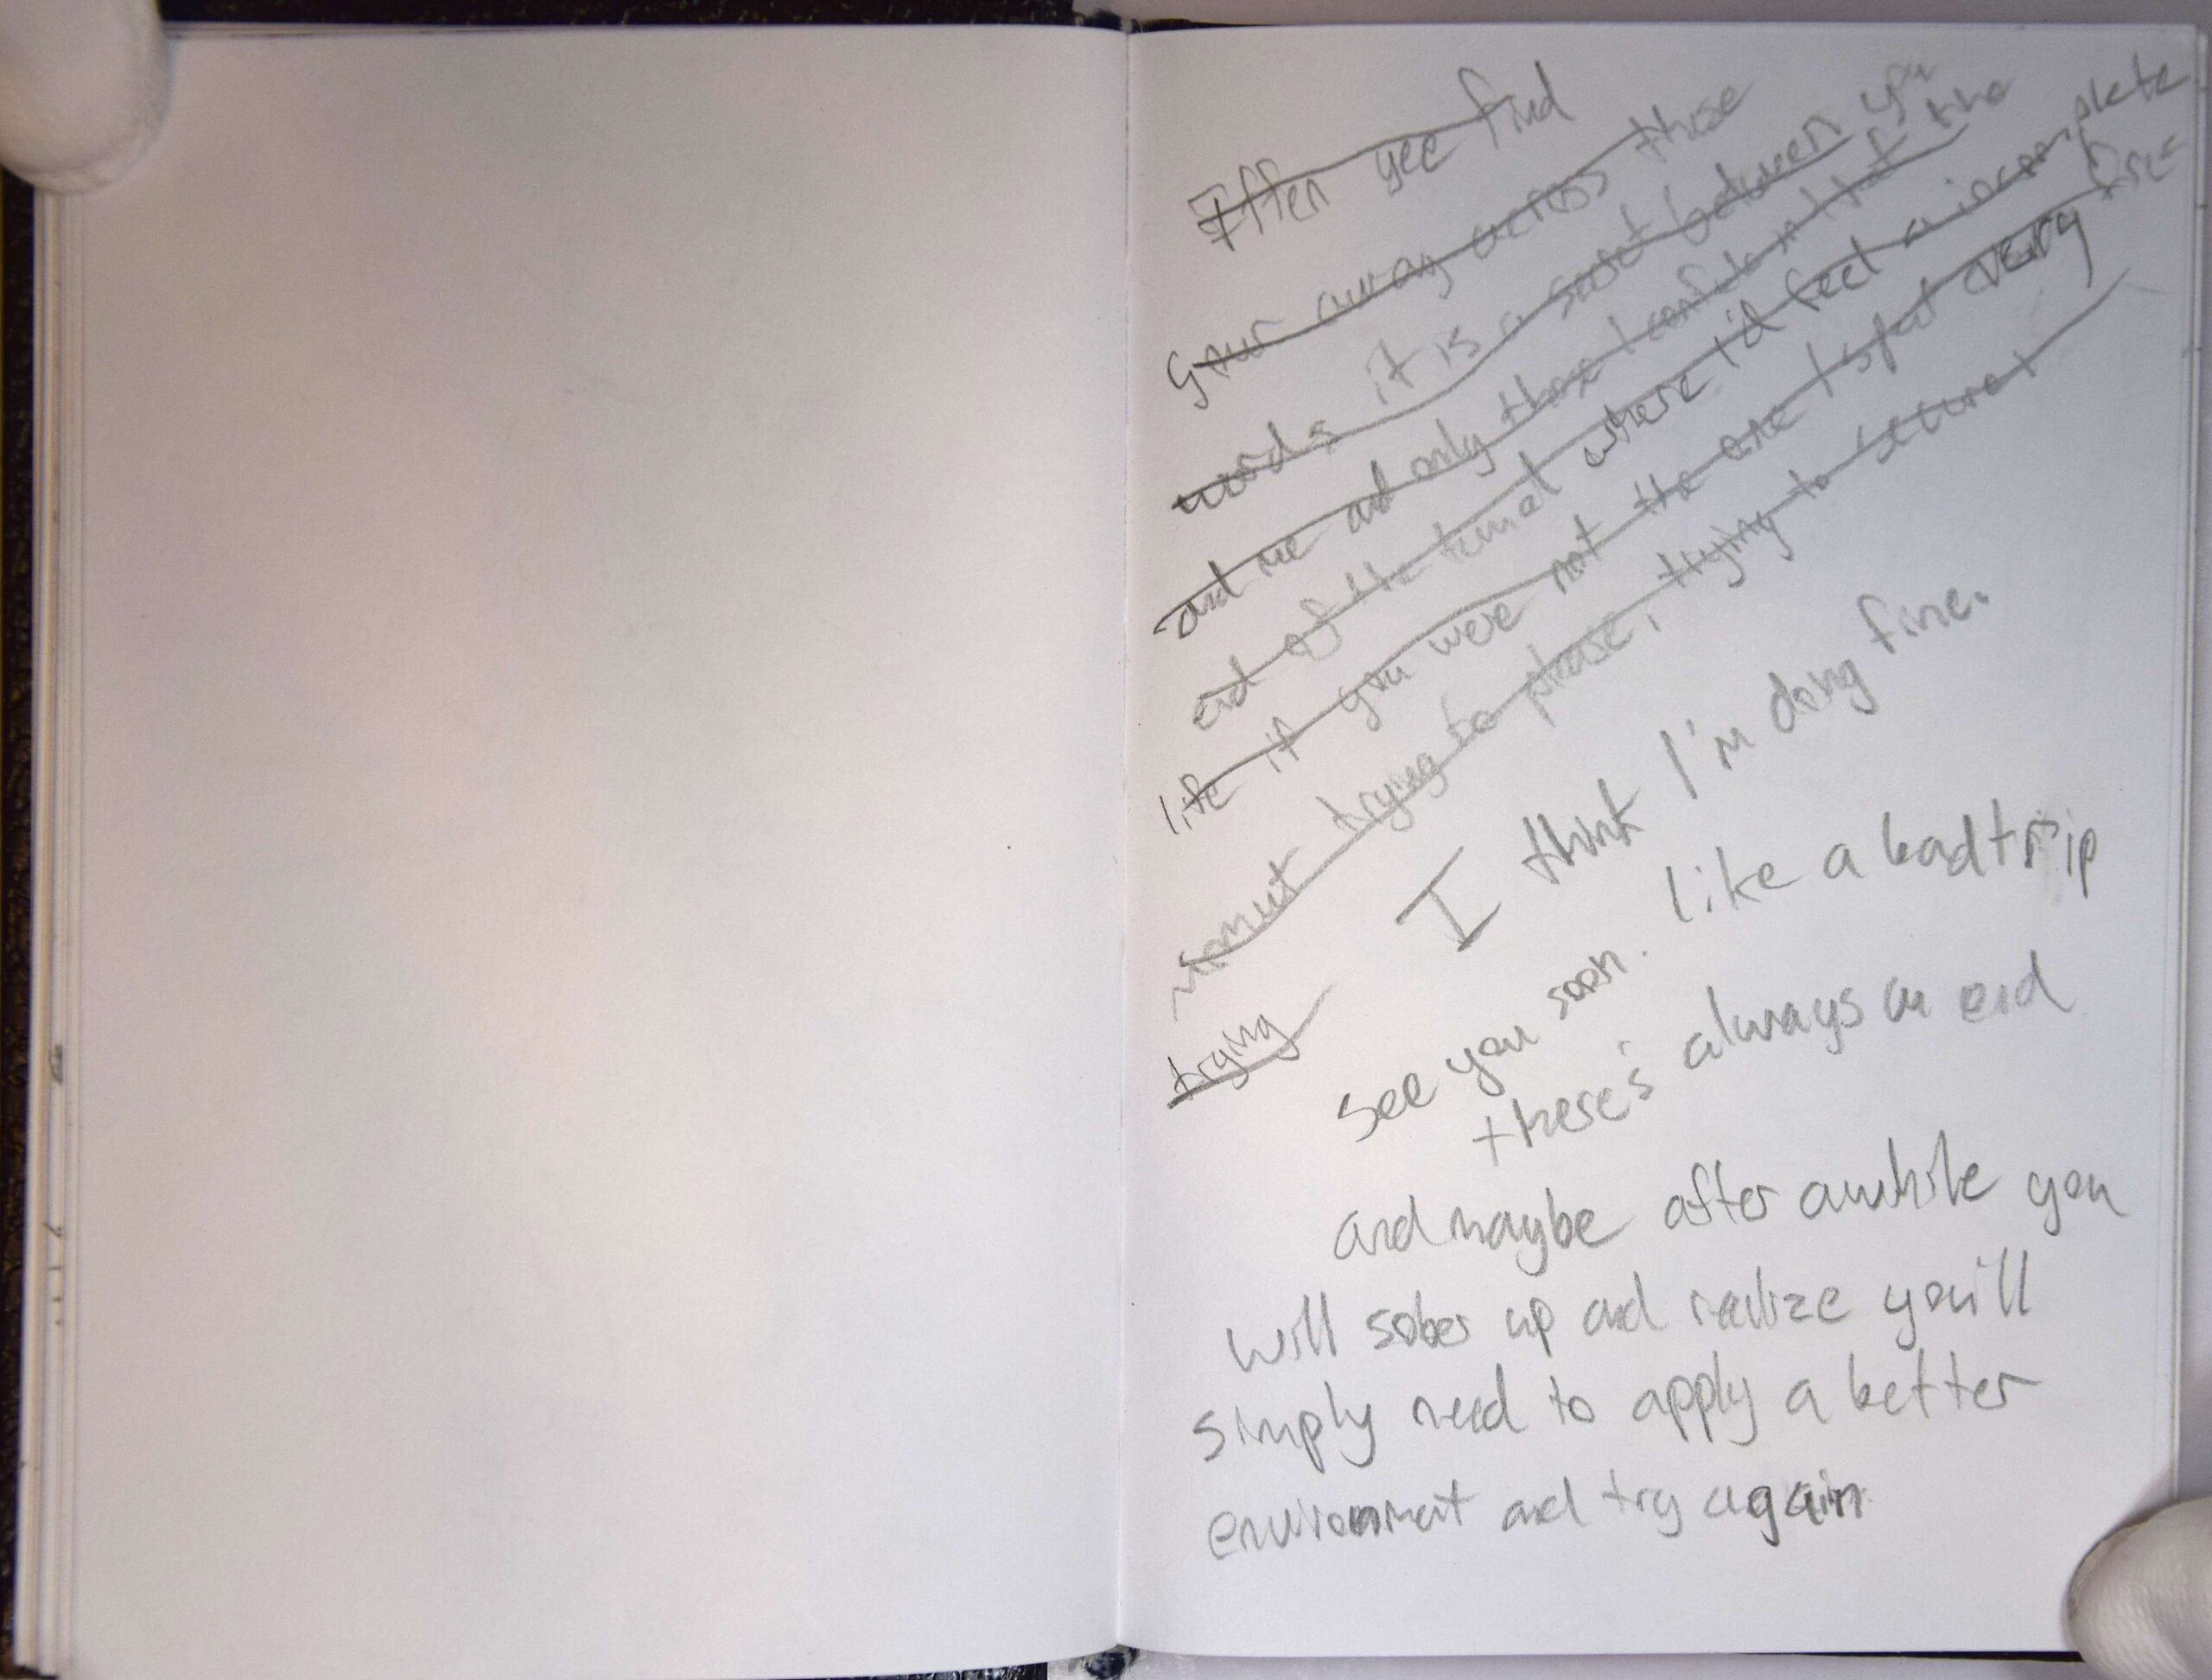 Iffen yee find
your away across these
words it is a secret between you
and me and only those I confide in that the
end of the tunnel where i'd feel a incomplete
life if you were not the one I spent every
moment trying to please, trying to secure
trying
I think I'm doing fine.
see you soon. Like a bad trip
there's always an end
and maybe after awhile you
will sober up and realize you'll
simply need to apply a better
environment and try again